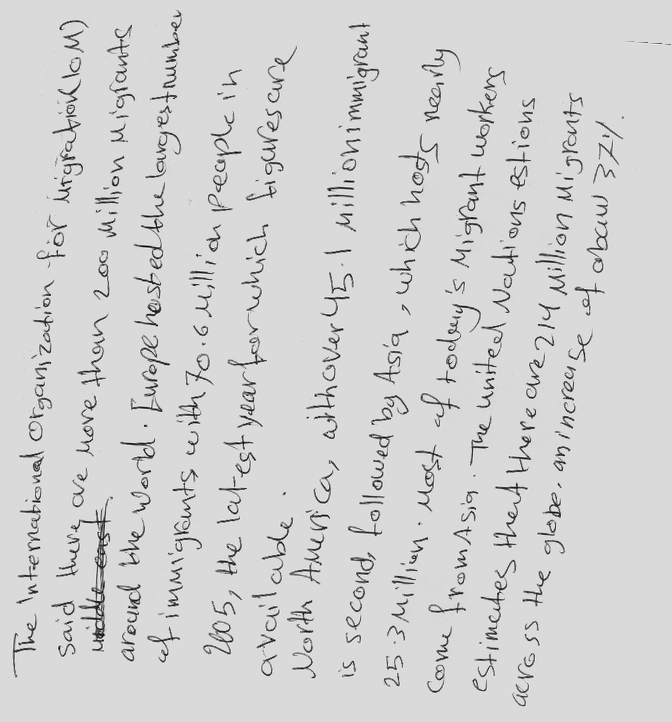 The International Organization for Migration (IOM)
said there are more than 200 million Migrants
around the world. Europe hosted the largest number
of immigrants, with 70.6 million people in
2005, the latest year for which figures are
available.
North America, with over 45.1 million immigrants
is second, followed by Asia, which hosts nearly
25.3 million. Most of today's Migrant workers
come from Asia. The United Nations estions
estimates that there are 214 million Migrants
across the globe, an increase of about 37%.